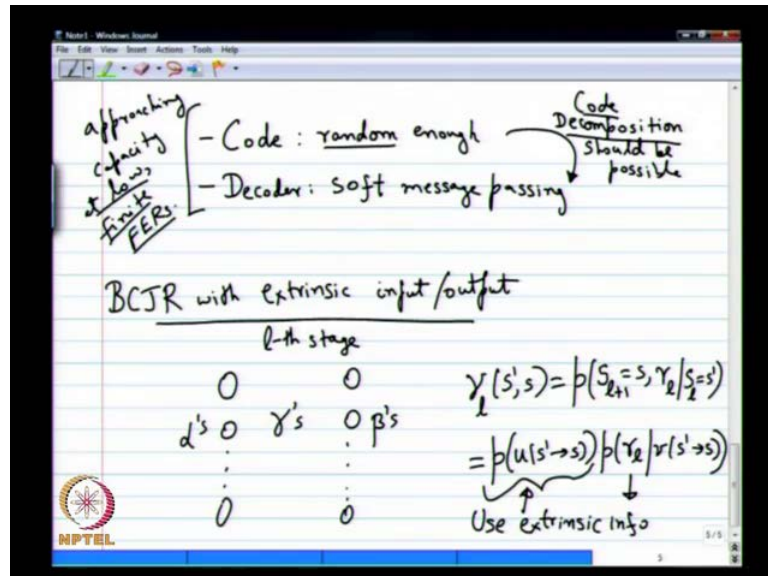 Note1 - Windows Journal
File Edit View Insert Actions Tools Help
approaching
capacity
at low,
finite
FERs.
- Code : random enough
- Decoder: Soft message passing
Code
Decomposition
should be
possible
BCJR with extrinsic input/output
l-th stage
α's γ's β's
γ_l(s',s) = p(S_{l+1}=s, r_l | S_l=s')
= p(u(s'→s)) p(r_l | v(s'→s))
Use extrinsic info
NPTEL
5/5
5